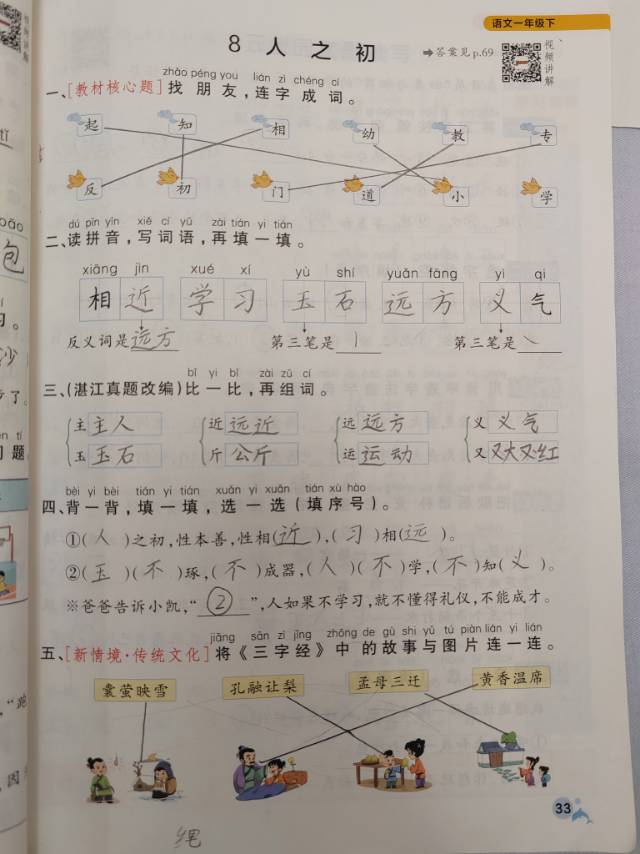 语文一年级下
8 人 之 初
➡答案见 p.69
视频讲解
zhǎo péng you lián zì chéng cí
一、[教材核心题]找朋友,连字成词。
起 知 相 幼 教 专
反 初 门 道 小 学
dú pīn yīn xiě cí yǔ zài tián yi tián
二、读拼音,写词语,再填一填。
xiāng jìn xué xí yù shí yuǎn fāng yì qì
相近 学习 玉石 远方 义气
反义词是远方 第三笔是丨 第三笔是㇏
bǐ yi bǐ zài zǔ cí
三、(湛江真题改编)比一比,再组词。
主 主人 近 远近 远 远方 义 义气
玉 玉石 斤 公斤 运 运动 又 又大又红
bèi yi bèi tián yi tián xuǎn yi xuǎn tián xù hào
四、背一背,填一填,选一选(填序号)。
①(人)之初,性本善,性相(近),(习)相(远)。
②(玉)(不)琢,(不)成器,(人)(不)学,(不)知(义)。
※爸爸告诉小凯,“②”,人如果不学习,就不懂得礼仪,不能成才。
jiāng sān zì jīng zhōng de gù shi yǔ tú piàn lián yi lián
五、[新情境·传统文化]将《三字经》中的故事与图片连一连。
囊萤映雪 孔融让梨 孟母三迁 黄香温席
33
绳